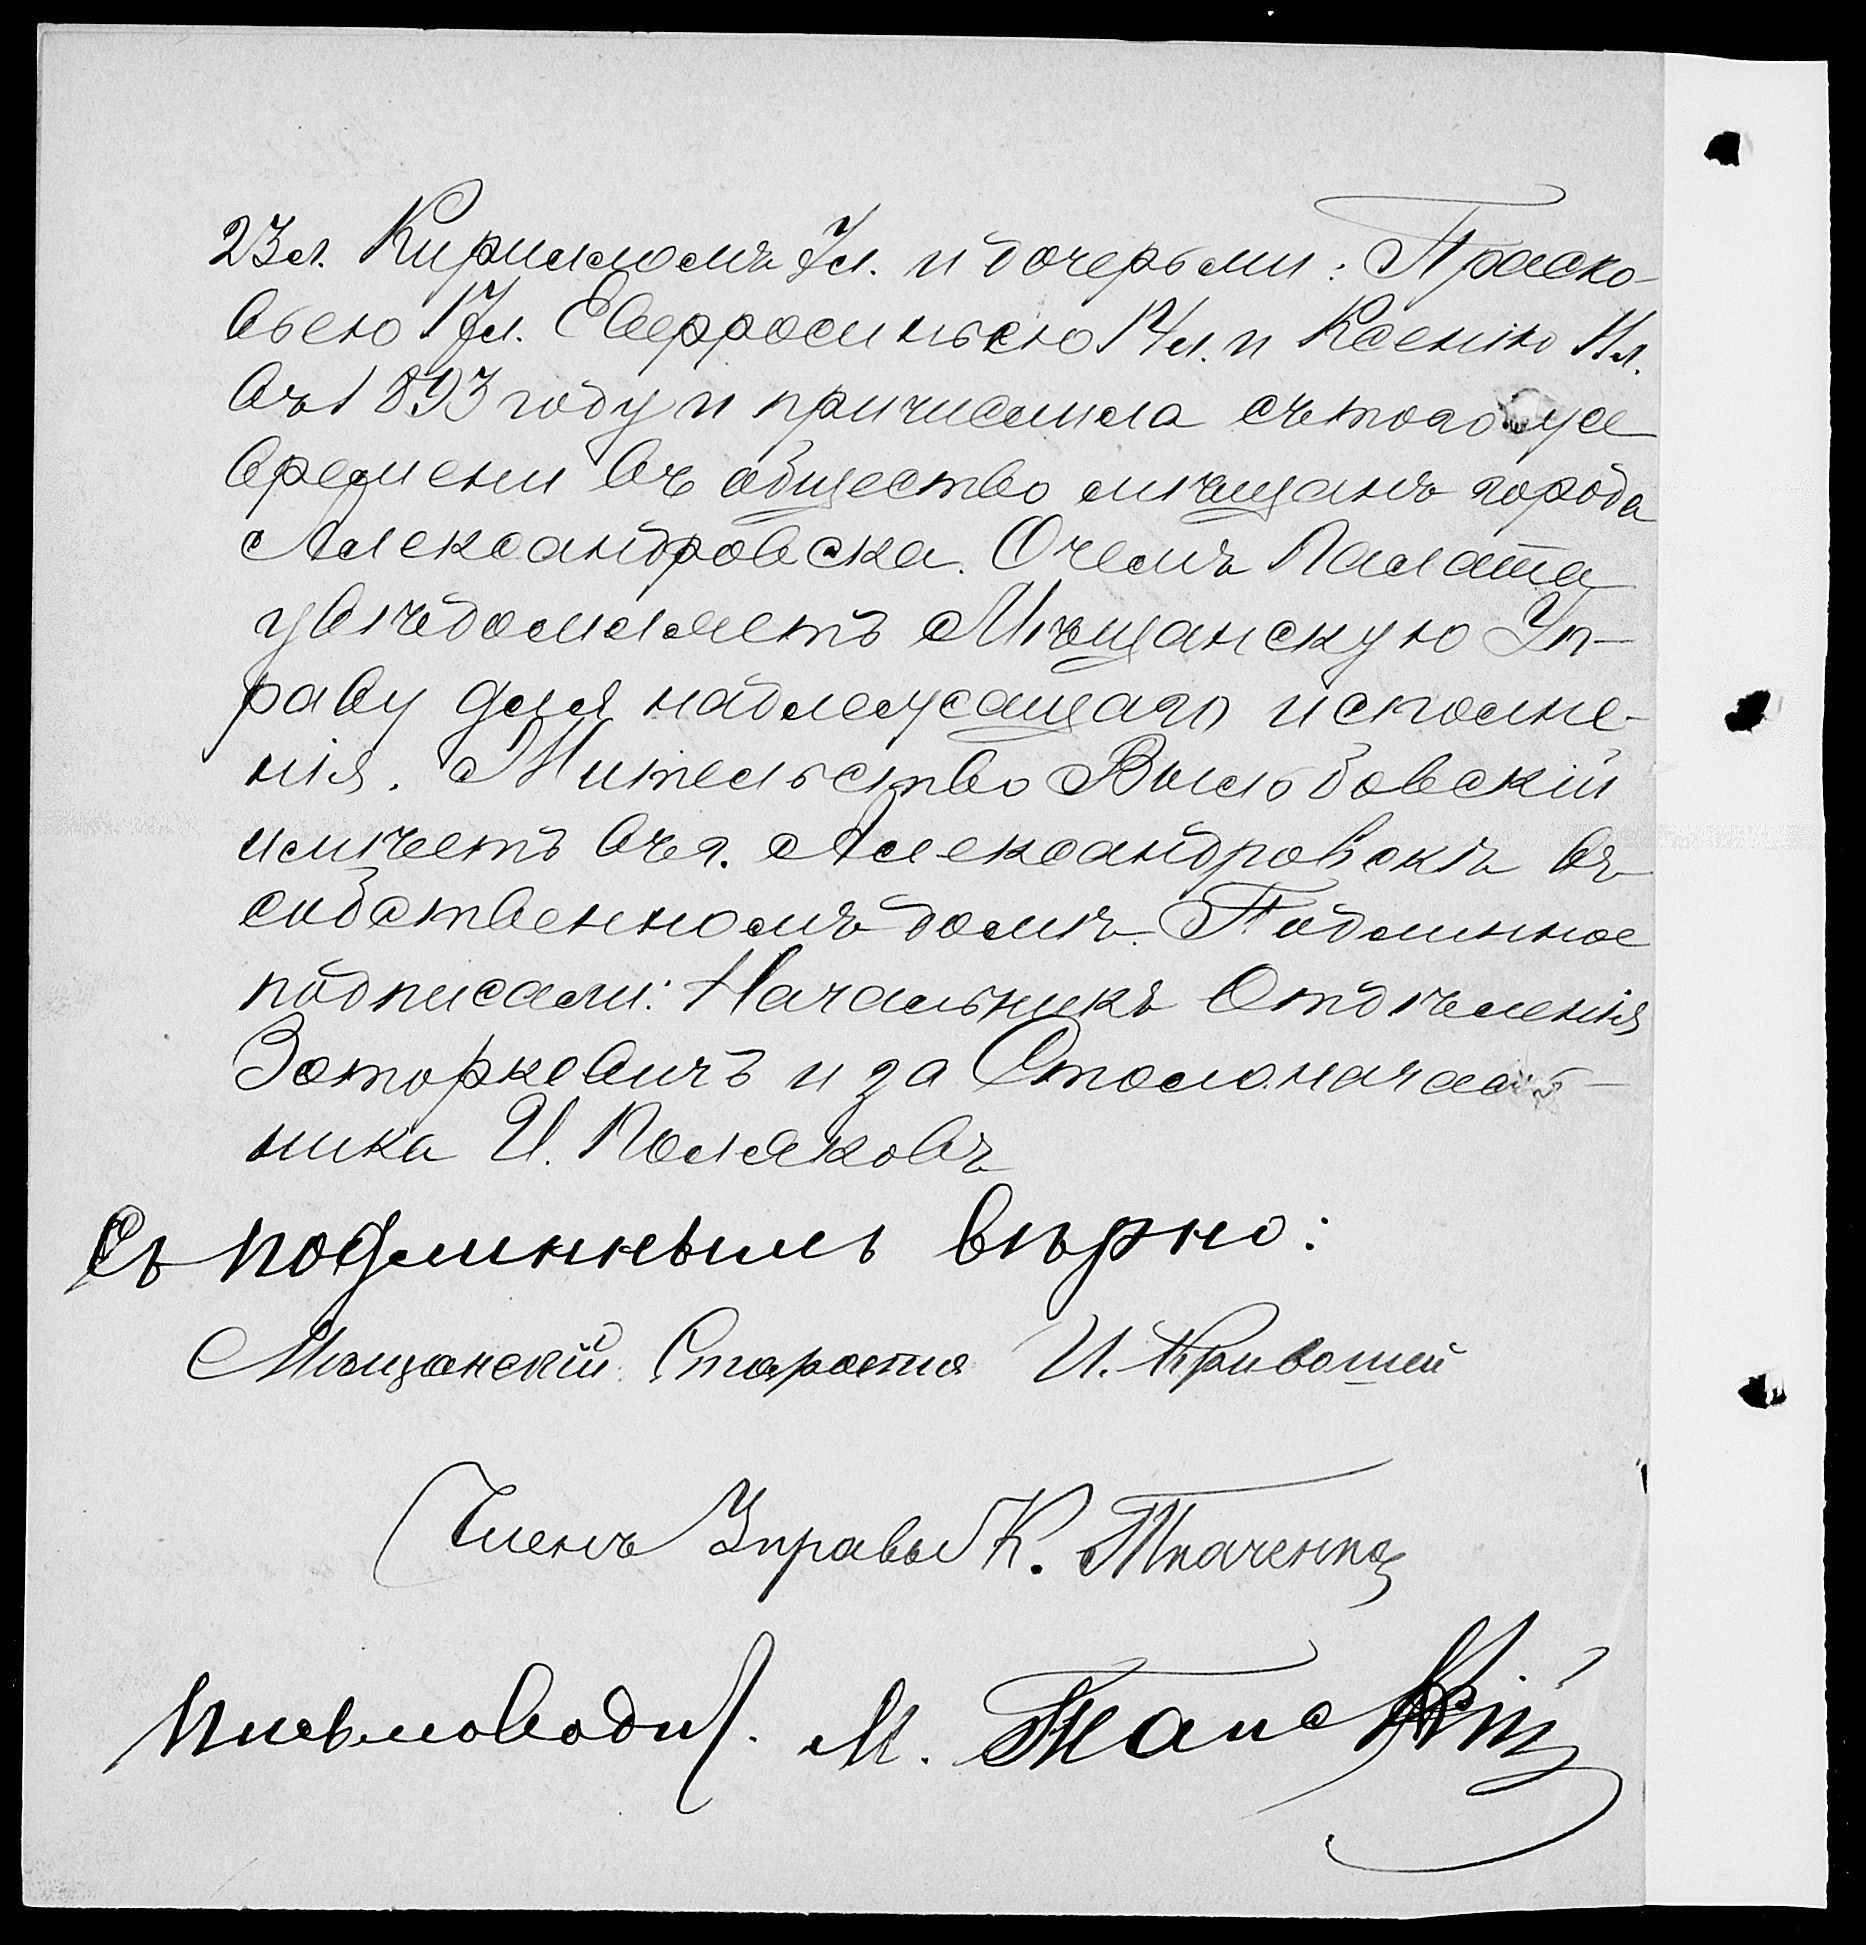 23 л. Кирилломъ 7 л. и дочерьми: Праско-
вьею 17 л. Евфросиньею 14 л. и Ксеніею 11 л.
въ 1893 году и причислила съ того же
времени въ общество мѣщанъ города
Александровска. О чемъ Палата
увѣдомляетъ Мѣщанскую Уп-
раву для надлежащаго исполне-
нія. Жительство
имѣетъ въ г. Александровскѣ въ
собственномъ домѣ. Подлинное
подписали: Начальникъ Отдѣленія
и за Столоначаль-
ника И. Поляковъ
Съ подлиннымъ вѣрно:
Мѣщанскій Староста И. Кривошей
Членъ Управы К. Ткаченко
Письмоводит. М.